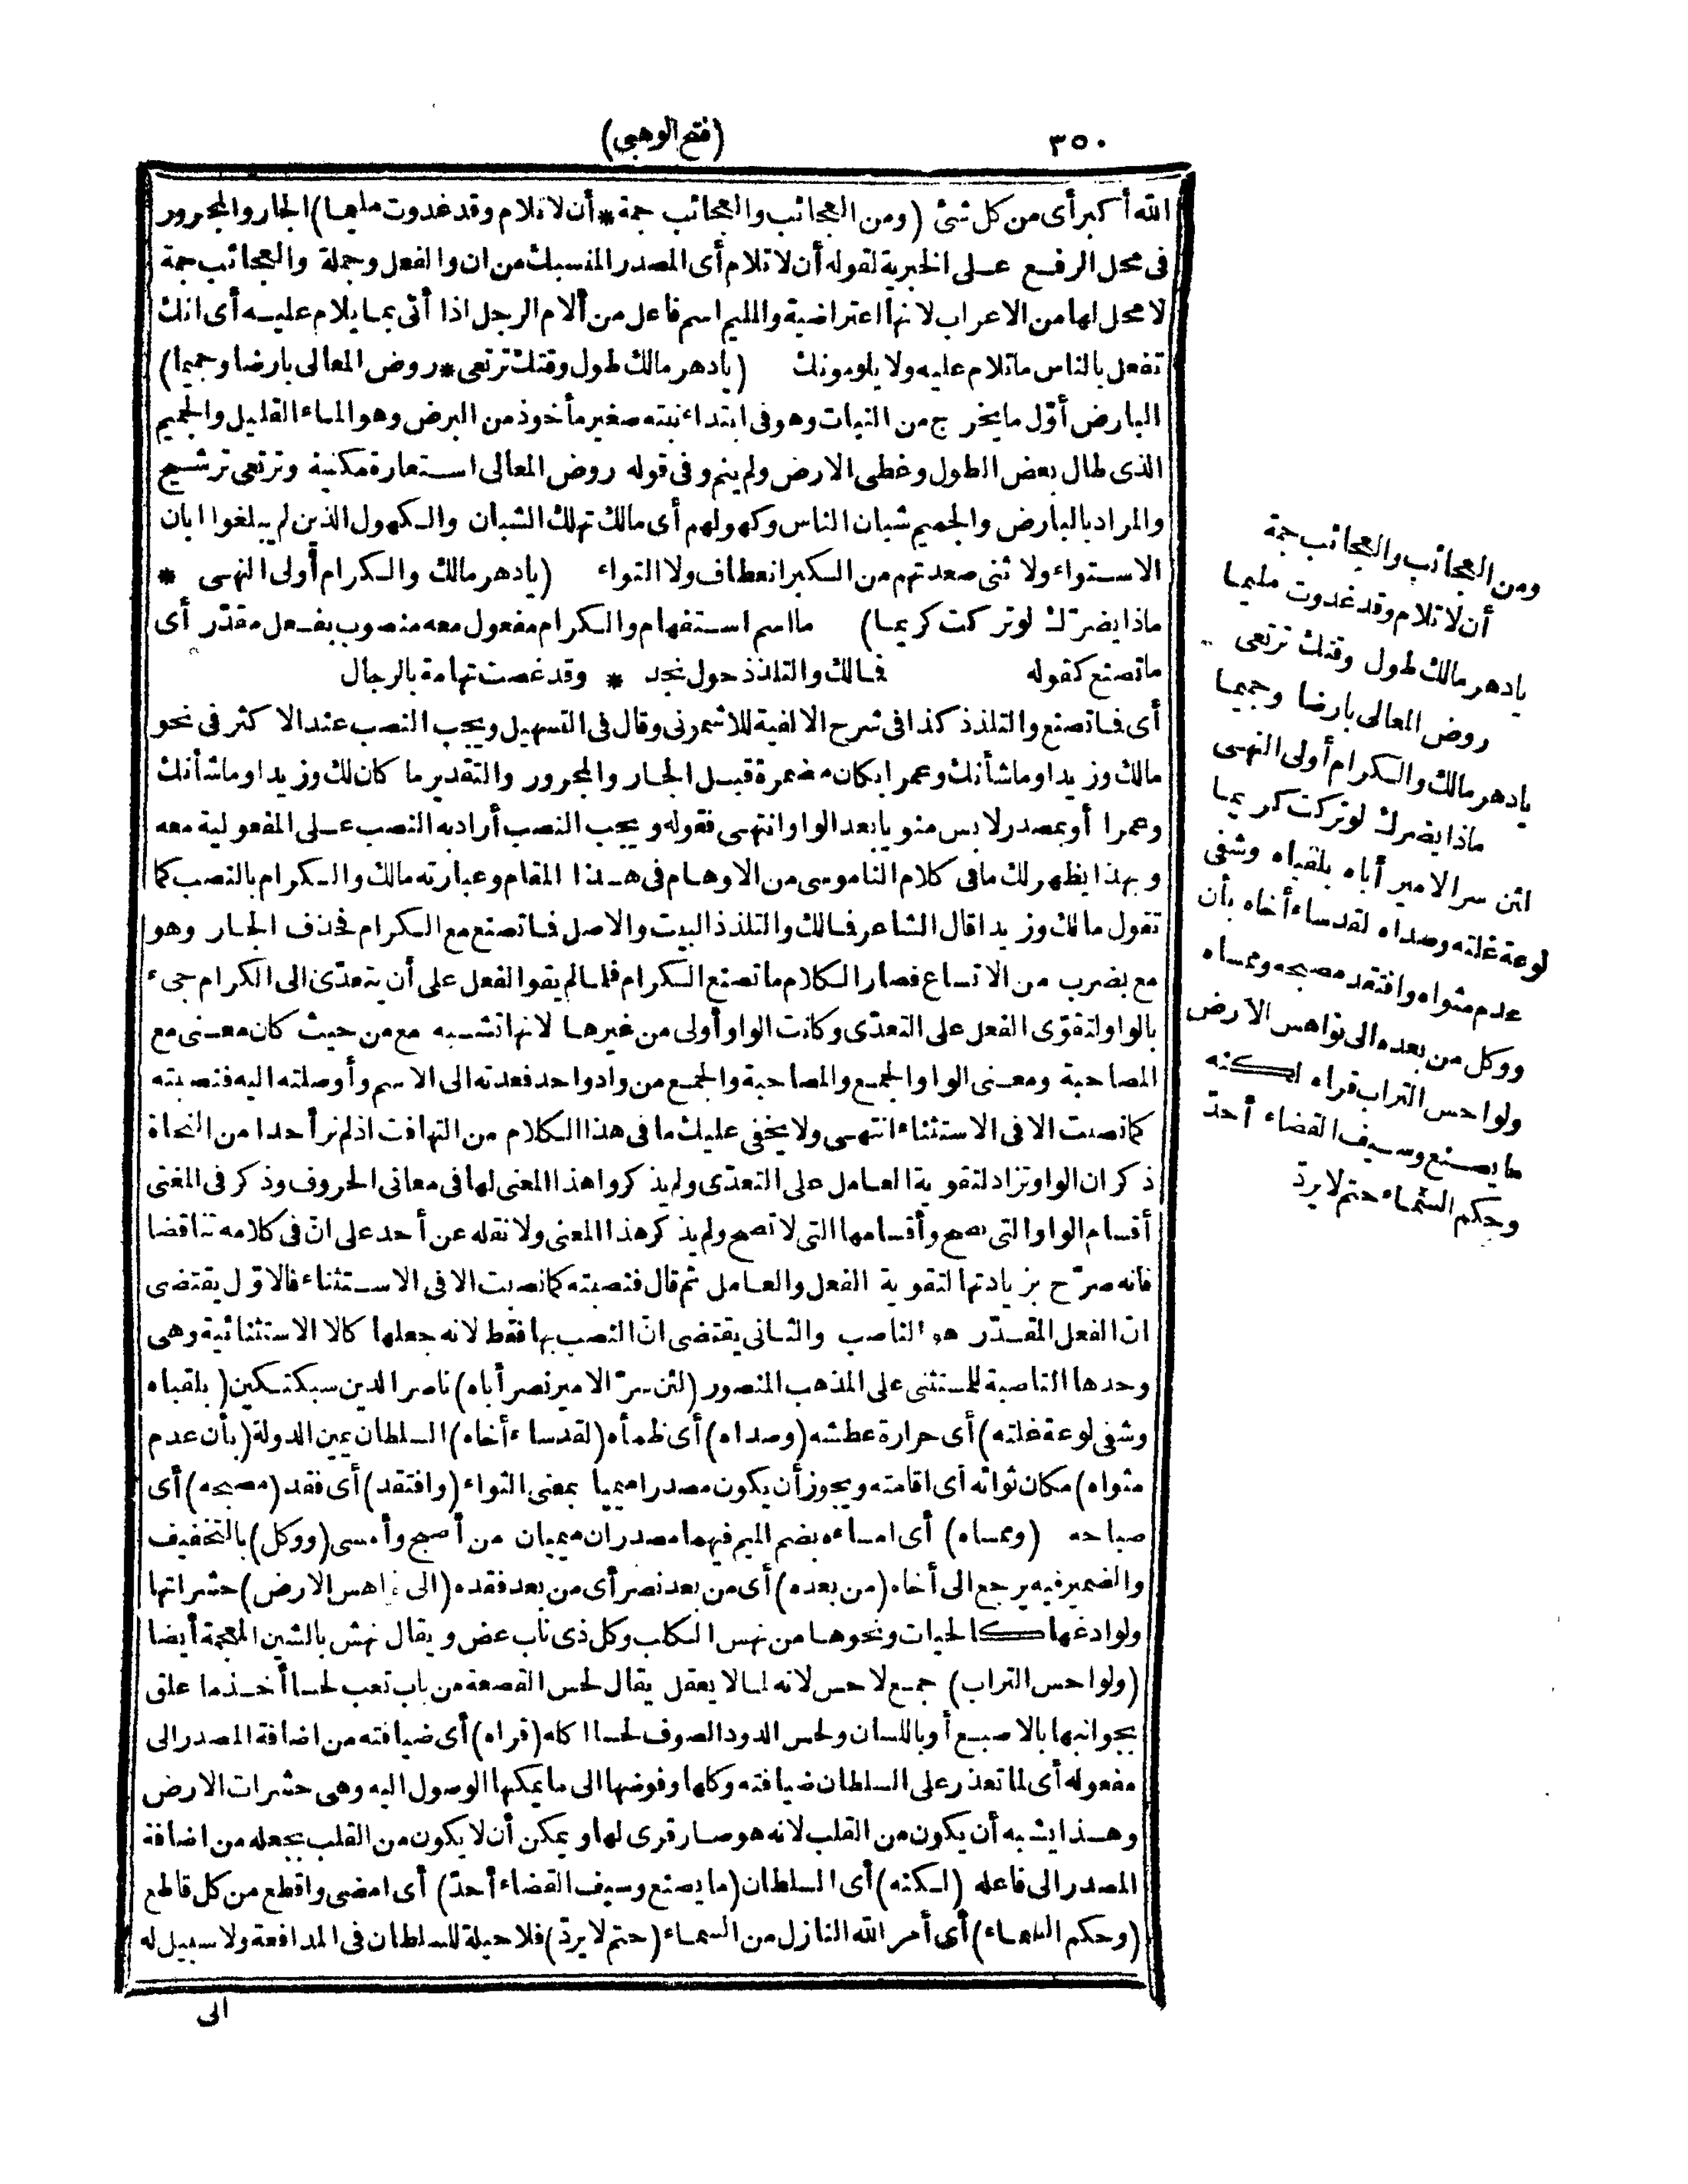 ٣٥٠
(فتح الوهبي)
الله أكبر أى من كل شئ (ومن العجائب والعجائب جمة * أن لا تلام وقد غدوت مليما) الجار والمجرور
فى محل الرفع على الخبرية لقوله أن لا تلام أى المصدر المنسبك من ان والفعل وجملة والعجائب جمة
لا محل لها من الاعراب لانها اعتراضية والمليم اسم فاعل من ألام الرجل اذا أتى بما يلام عليه أى انك
تفعل بالناس ما تلام عليه ولا يلومونك (يا دهر مالك طول وقتك ترتعى * روض المعالى بارضا وجميما)
البارض أوّل ما يخرج من النبات وهو فى ابتداء نبته صغير مأخوذ من البرض وهو الماء القليل والجميم
الذى طال بعض الطول وغطى الارض ولم يتم وفى قوله روض المعالى استعارة مكنية وترتعى ترشيح
والمراد بالبارض والجميم شبان الناس وكهولهم أى مالك تهلك الشبان والكهول الذين لم يبلغوا ابان
الاستواء ولا ثنى صعدتهم من الكبر انعطاف ولا التواء (يا دهر مالك والكرام أولى النهى *
ماذا يضرّك لو تركت كريما) ما اسم استفهام والكرام مفعول معه منصوب بفعل مقدّر أى
ما تصنع كقوله فمالك والتلذذ حول نجد * وقد غصت تهامة بالرجال
أى فما تصنع والتلذذ كذا فى شرح الالفية للاشمونى وقال فى التسهيل ويجب النصب عند الاكثر فى نحو
مالك وزيدا وما شأنك وعمرا بكان مضمرة قبل الجار والمجرور والتقدير ما كان لك وزيدا وما شأنك
وعمرا أو بمصدر لابس منويا بعد الواو انتهى فقوله ويجب النصب أراد به النصب على المفعولية معه
وبهذا يظهر لك ما فى كلام الناموسى من الاوهام فى هذا المقام وعبارته مالك والكرام بالنصب كما
تقول مالك وزيدا قال الشاعر فمالك والتلذذ البيت والاصل فما تصنع مع الكرام فحذف الجار وهو
مع بضرب من الاتساع فصار الكلام ما تصنع الكرام فلما لم يقو الفعل على أن يتعدّى الى الكرام جىء
بالواو لتقوّى الفعل على التعدّى وكانت الواو أولى من غيرها لانها تشبه مع من حيث كان معنى مع
المصاحبة ومعنى الواو الجمع والمصاحبة والجمع من واد واحد فعدته الى الاسم وأوصلته اليه فنصبته
كما نصبت الا فى الاستثناء انتهى ولا يخفى عليك ما فى هذا الكلام من التهافت اذ لم نر أحدا من النحاة
ذكر ان الواو تزاد لتقوية العامل على التعدّى ولم يذكروا هذا المعنى لها فى معانى الحروف وذكر فى المغنى
أقسام الواو التى تصح وأقسامها التى لا تصح ولم يذكر هذا المعنى ولا نقله عن أحد على انّ فى كلامه تناقضا
فانه صرّح بزيادتها لتقوية الفعل والعامل ثم قال فنصبته كما نصبت الا فى الاستثناء فالاوّل يقتضى
انّ الفعل المقدّر هو الناصب والثانى يقتضى انّ النصب بها فقط لانه جعلها كالا الاستثنائية وهى
وحدها الناصبة للمستثنى على المذهب المنصور (لئن سرّ الامير نصر أباه) ناصر الدين سبكتكين (بلقياه
وشفى لوعة غلته) أى حرارة عطشه (وصداه) أى ظمأه (لقد ساء أخاه) السلطان يمين الدولة (بأن عدم
مثواه) مكان ثوائه أى اقامته ويجوز أن يكون مصدرا ميميا بمعنى الثواء (وافتقد) أى فقد (مصبحه) أى
صباحه (وممساه) أى امساءه بضم الميم فيهما مصدران ميميان من أصبح وأمسى (ووكل) بالتخفيف
والضمير فيه يرجع الى أخاه (من بعده) أى من بعد نصر أى من بعد فقده (الى نواهس الارض) حشراتها
ولوادغها كالحيات ونحوها من نهس الكلب وكل ذى ناب عض ويقال نهش بالشين المعجمة أيضا
(ولواحس التراب) جمع لاحس لانه لما لا يعقل يقال لحس القصعة من باب تعب لحسا أخذ ما علق
بجوانبها بالاصبع أو باللسان ولحس الدود الصوف لحسا اكله (قراه) أى ضيافته من اضافة المصدر الى
مفعوله أى لما تعذر على السلطان ضيافته وكلها وفوضها الى ما يمكنها الوصول اليه وهى حشرات الارض
وهذا يشبه أن يكون من القلب لانه هو صار قرى لها ويمكن أن لا يكون من القلب بجعله من اضافة
المصدر الى فاعله (لكنه) أى السلطان (ما يصنع وسيف القضاء أحدّ) أى امضى واقطع من كل قاطع
(وحكم السماء) أى أمر الله النازل من السماء (حتم لا يردّ) فلا حيلة للسلطان فى المدافعة ولا سبيل له
الى
ومن العجائب والعجائب جمة
أن لا تلام وقد غدوت مليما
يا دهر مالك طول وقتك ترتعى
روض المعالى بارضا وجميما
يا دهر مالك والكرام أولى النهى
ماذا يضرك لو تركت كريما
لئن سر الامير أباه بلقياه وشفى
لوعة غلته وصداه لقد ساء أخاه بأن
عدم مثواه وافتقد مصبحه وممساه
ووكل من بعده الى نواهس الارض
ولواحس التراب قراه لكنه
ما يصنع وسيف القضاء أحدّ
وحكم السماء حتم لا يردّ